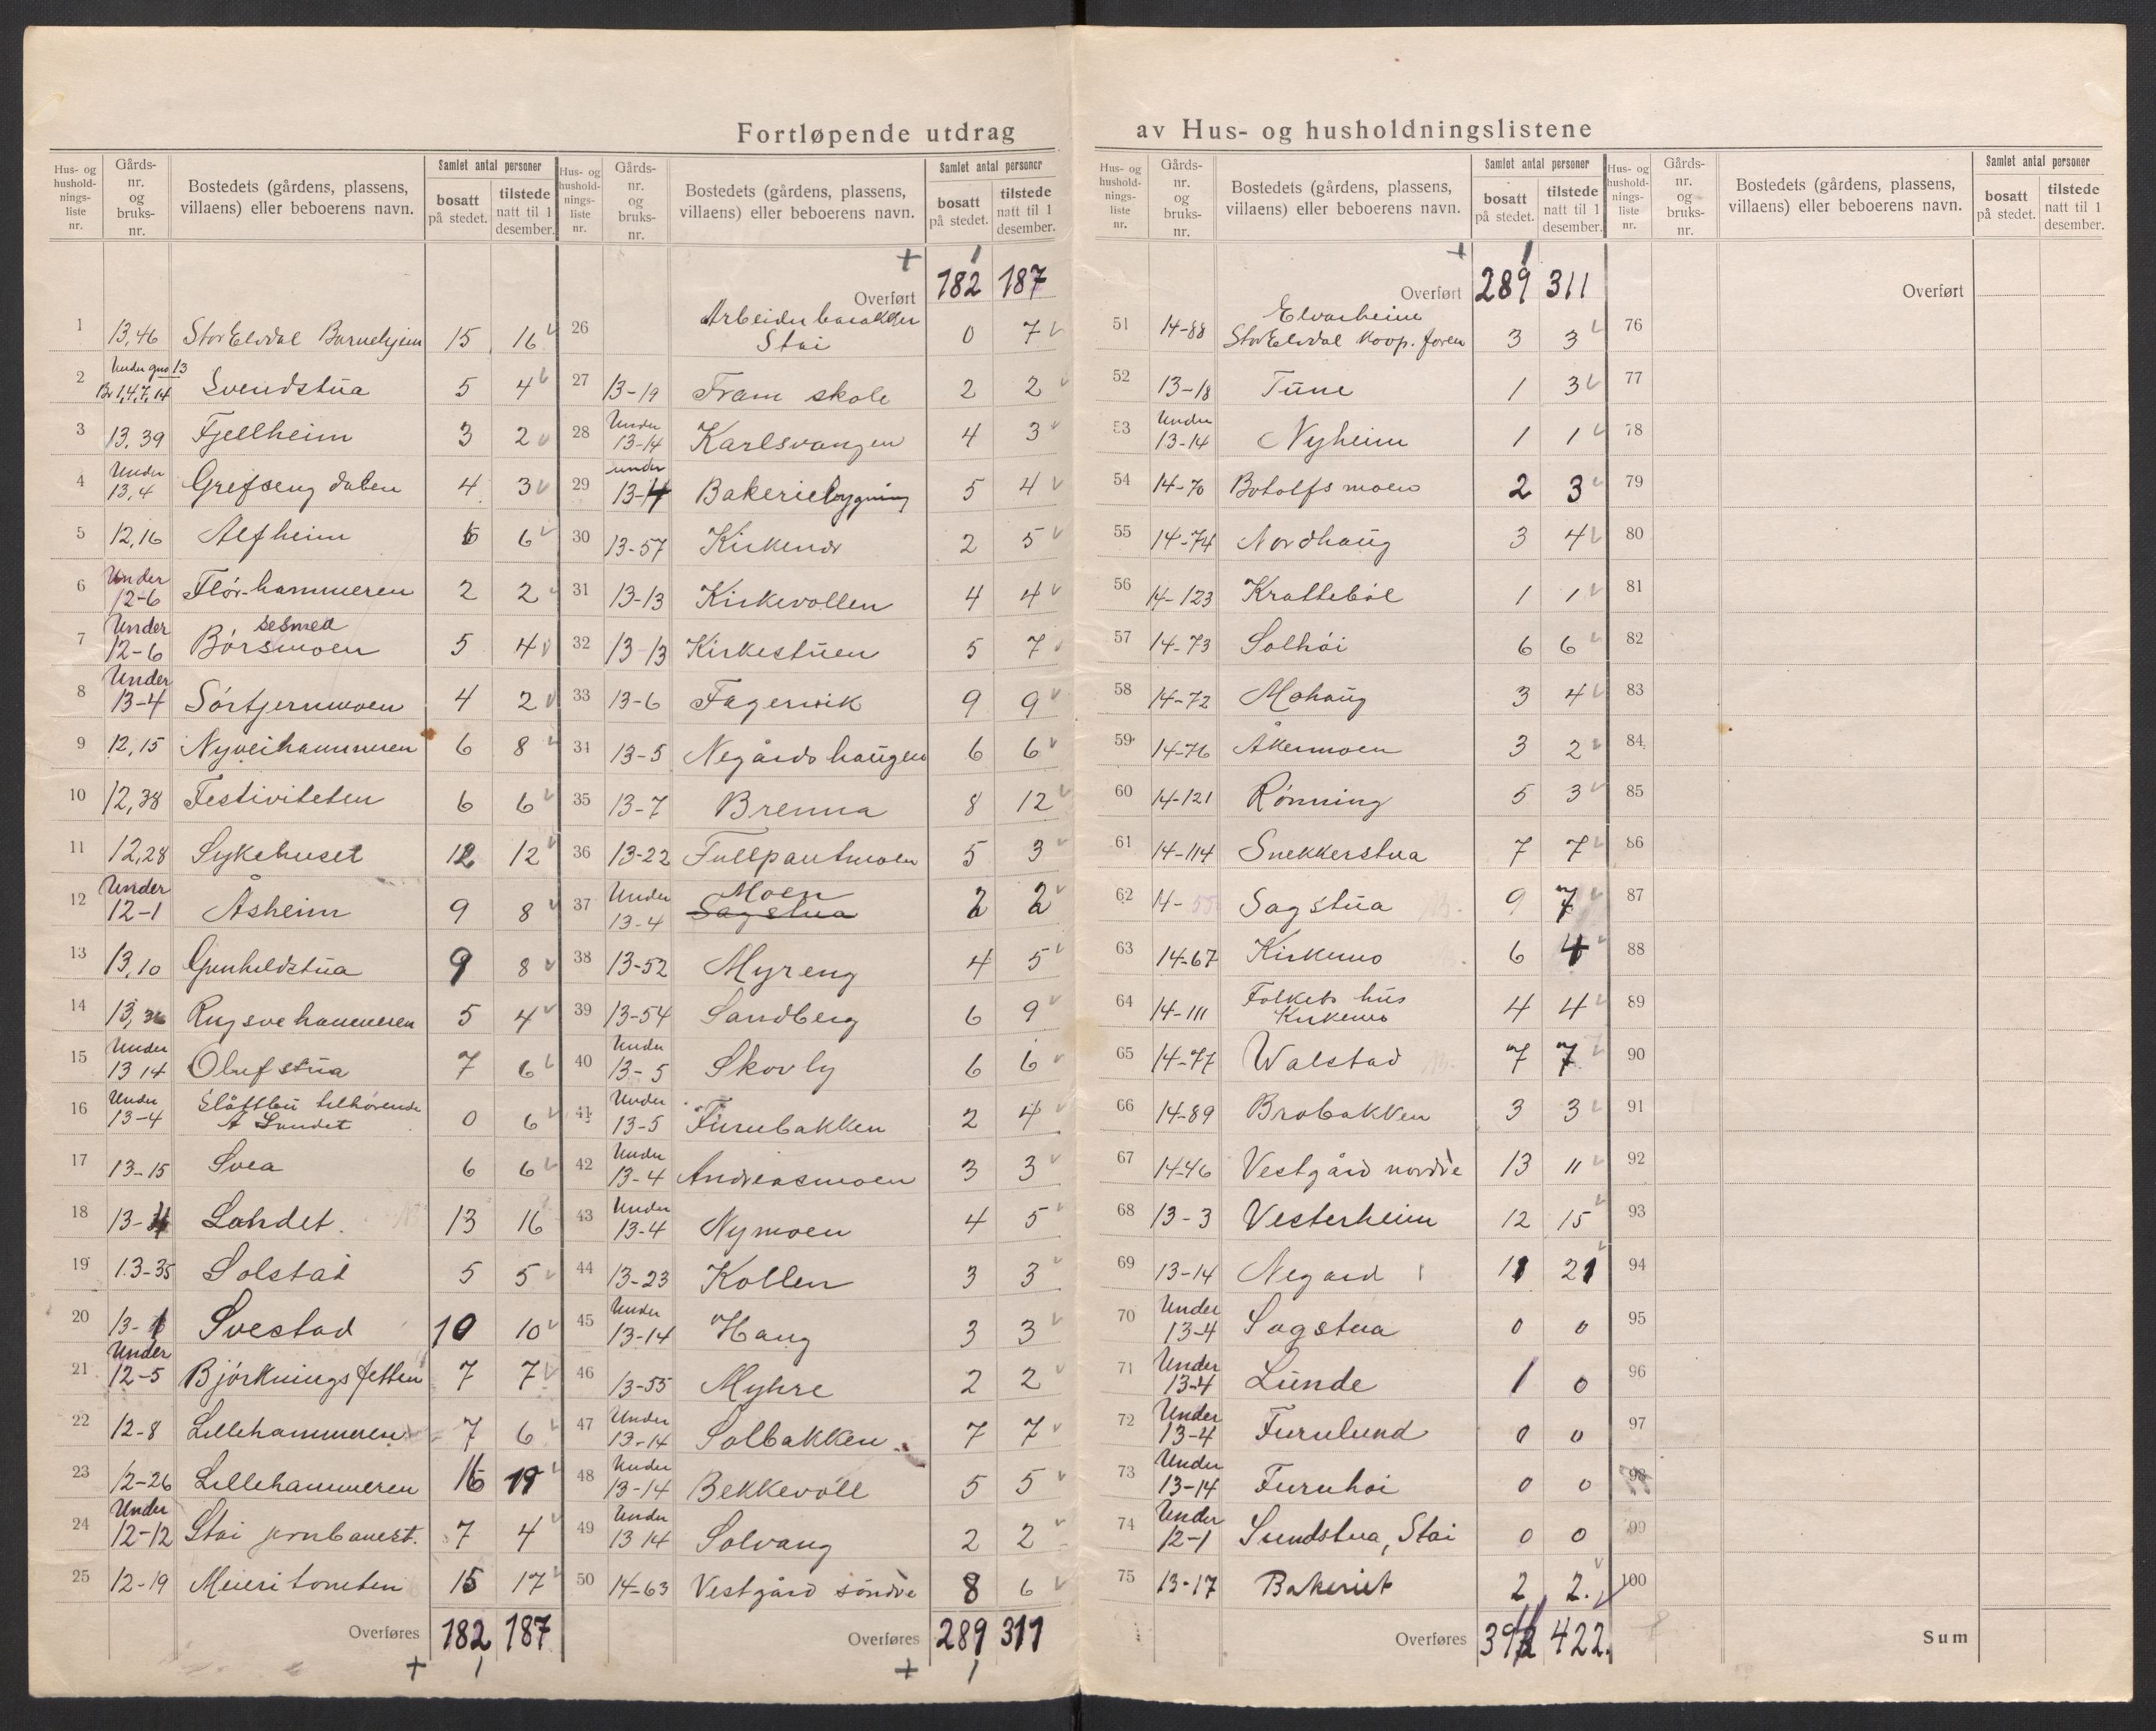 Fortløpende utdrag av Hus- og husholdningslistene
Hus- og husholdningsliste nr. | Gårds-nr. og bruks-nr. | Bostedets (gårdens, plassens, villaens) eller beboerens navn. | Samlet antal personer | bosatt på stedet. | tilstede natt til 1 desember.
1 13,46 Stor Elvdal Barnehjem 15 16
2 Under gno 13 Br 1,4,7,14 Svendstua 5 4
3 13,39 Fjellheim 3 2
4 Under 13,4 Grefseng daben 4 3
5 12,16 Alfheim 6 6
6 Under 12-6 Flor-hammeren 2 2
7 Under 12-6 Børsmoen sesmed 5 4
8 Under 13-4 Sørtjernmoen 4 2
9 12,15 Nyveihammeren 6 8
10 12,38 Festiviteten 6 6
11 12,28 Sykehuset 12 12
12 Under 12-1 Åsheim 9 8
13 13,10 Gunhildstua 9 8
14 13,36 Rugsvehammeren 5 4
15 Under 13 14 Olufstua 7 6
16 Under 13-4 Slåttbu tilhørende Lundet 0 6
17 13-15 Svea 6 6
18 13-4 Landet. 13 16
19 13-35 Solstad 5 5
20 13-1 Svestad 10 10
21 Under 12-5 Bjørkningsfetten 7 7
22 12-8 Lillehammeren 7 6
23 12-26 Lillehammeren 16 19
24 Under 12-12 Stai jernbanest. 7 4
25 12-19 Meieritomten 15 17
Overføres 182 187
Hus- og husholdningsliste nr. | Gårds-nr. og bruks-nr. | Bostedets (gårdens, plassens, villaens) eller beboerens navn. | Samlet antal personer | bosatt på stedet. | tilstede natt til 1 desember.
Overført 182 187
26 Arbeider barakker Stai 0 7
27 13-19 Fram skole 2 2
28 Under 13-14 Karlsvangen 4 3
29 under 13-4 Bakeriebygning 5 4
30 13-57 Kirkemo 2 5
31 13-13 Kirkevollen 4 4
32 13 13 Kirkestuen 5 7
33 13-6 Fagervik 9 9
34 13-5 Negårdshaugen 6 6
35 13-7 Brenna 8 12
36 13-22 Fullpantmoen 5 3
37 Under 13-4 Moen Sagstua 2 2
38 13-52 Myreng 4 5
39 13-54 Sandberg 6 9
40 Under 13-5 Skovly 6 6
41 Under 13-5 Furubakken 2 4
42 Under 13-4 Andreasmoen 3 3
43 Under 13-4 Nymoen 4 5
44 13-23 Kollen 3 3
45 Under 13-14 Haug 3 3
46 13-55 Myhre 2 2
47 Under 13-14 Solbakken 7 7
48 Under 13-14 Bekkevoll 5 5
49 Under 13 14 Solvang 2 2
50 14-63 Vestgård søndre 8 6
Overføres 289 311
Hus- og husholdningsliste nr. | Gårds-nr. og bruks-nr. | Bostedets (gårdens, plassens, villaens) eller beboerens navn. | Samlet antal personer | bosatt på stedet. | tilstede natt til 1 desember.
Overført 289 311
51 14-88 Elvarheim Stor Elvdal Koop. foren 3 3
52 13-18 Tune 1 3
53 Under 13-14 Nyheim 1 1
54 14-70 Botolfsmoen 2 3
55 14-74 Nordhaug 3 4
56 14-123 Krattebøl 1 1
57 14-73 Solhøi 6 6
58 14-72 Mohaug 3 4
59 14-76 Åkermoen 3 2
60 14-121 Rønning 5 3
61 14-114 Snekkerstua 7 7
62 14-55 Sagstua 9 7
63 14-67 Kirkemo 6 4
64 14-111 Folkets hus Kirkemo 4 4
65 14-77 Walstad 7 7
66 14-89 Brobakken 3 3
67 14-46 Vestgård nordre 13 11
68 13-3 Vesterheim 12 15
69 13-14 Negard 11 21
70 Under 13-4 Sagstua 0 0
71 Under 13-4 Lunde 1 0
72 Under 13-4 Furulund 0 0
73 Under 13-14 Furuhøi 0 0
74 Under 12-1 Sundstua, Stai 0 0
75 13-17 Bakeriet 2 2.
Overføres 422.
Hus- og husholdningsliste nr. | Gårds-nr. og bruks-nr. | Bostedets (gårdens, plassens, villaens) eller beboerens navn. | Samlet antal personer | bosatt på stedet. | tilstede natt til 1 desember.
Overført
76
77
78
79
80
81
82
83
84
85
86
87
88
89
90
91
92
93
94
95
96
97
98
99
100
Sum